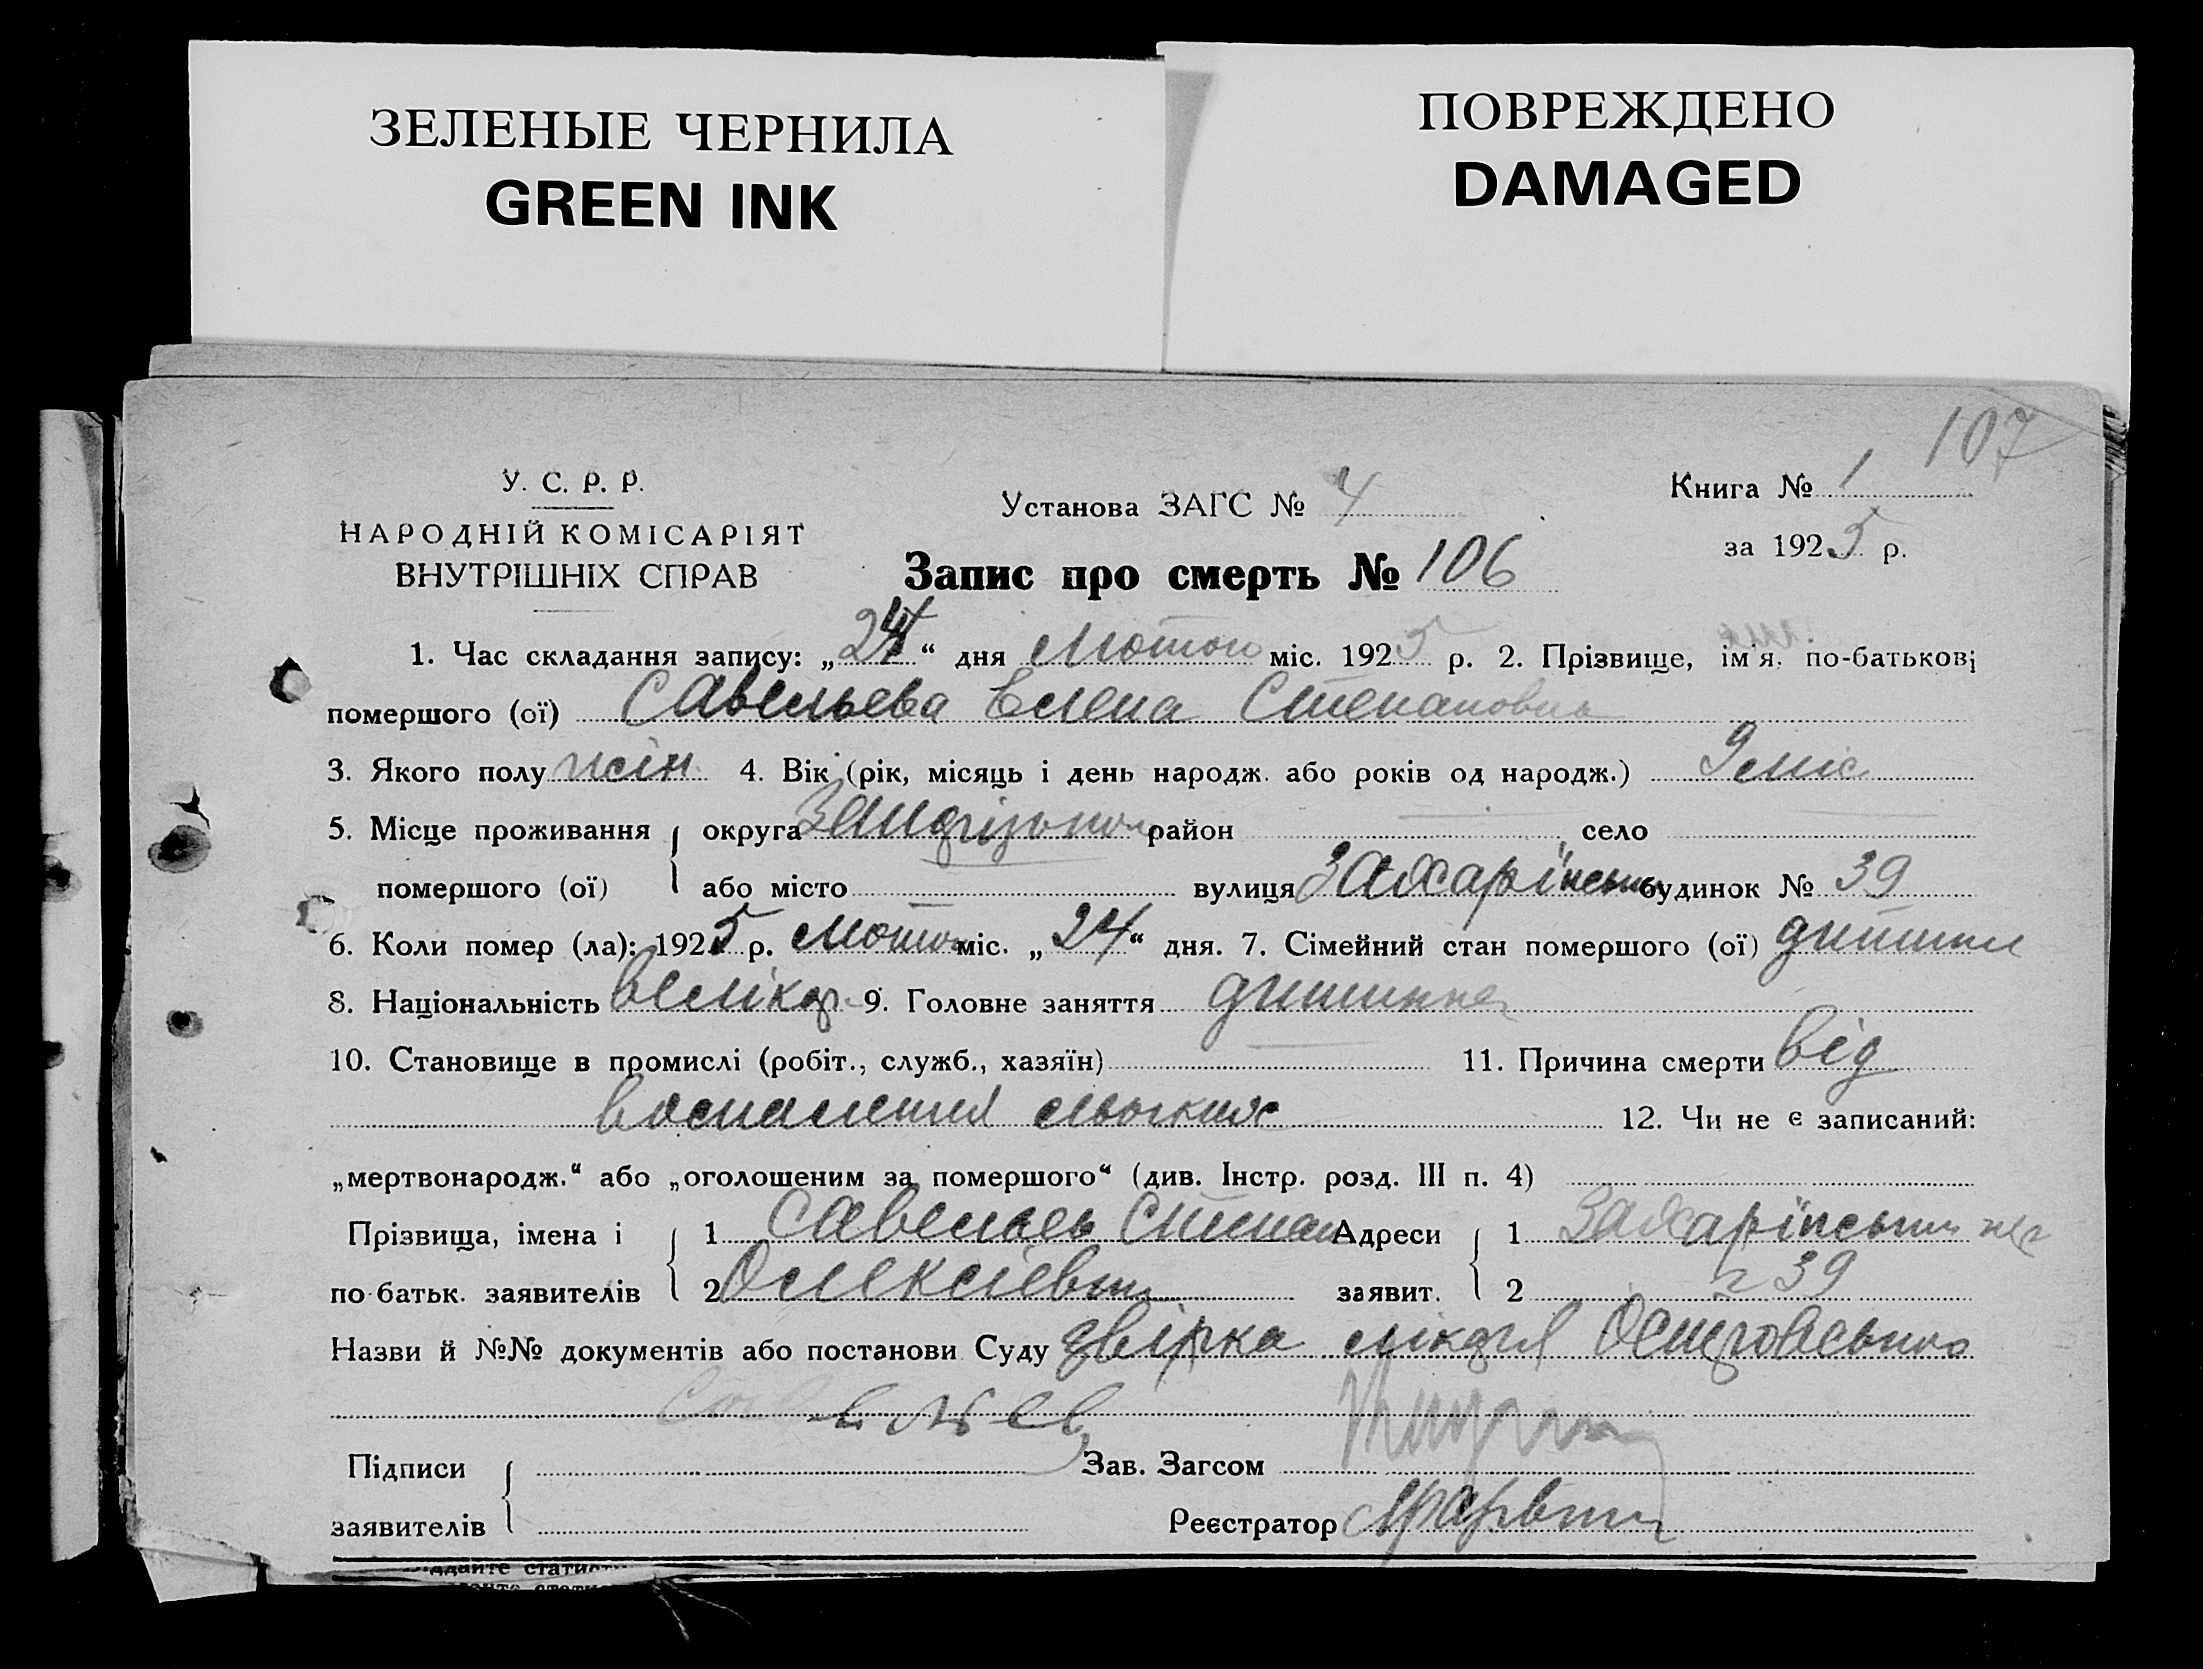 ЗЕЛЕНЫЕ ЧЕРНИЛА
GREEN INK
ПОВРЕЖДЕНО
DAMAGED
107
У. С. Р. Р.
НАРОДНІЙ КОМІСАРІЯТ
ВНУТРІШНІХ СПРАВ
Установа ЗАГС № 4
Книга № 1
за 1925 р.
Запис про смерть № 106
1. Час складання запису: „24“ дня Лютого міс. 1925 р. 2. Прізвище, ім'я, по-батькові
помершого (ої) Савельева Елена Степановна
3. Якого полу жін. 4. Вік (рік, місяць і день народж. або років од народж.) 9 міс
5. Місце проживання округа район село
помершого (ої) або місто вулиця Захарінська будинок № 39
6. Коли помер (ла): 1925 р. Лютого міс. „24“ дня. 7. Сімейний стан помершого (ої) дитина
8. Національність велікор. 9. Головне заняття
10. Становище в промислі (робіт., служб., хазяїн) 11. Причина смерти від
воспаления льогких 12. Чи не є записаний:
„мертвонародж.“ або „оголошеним за помершого“ (див. Інстр. розд. III п. 4)
Прізвища, імена і 1 Савельев Степан Адреси 1 Захарінська
по-батьк. заявителів 2 Олексієвич заявит. 2 39
Назви й №№ документів або постанови Суду лікаря Островського
Савельев
Підписи Зав. Загсом
заявителів Реєстратор